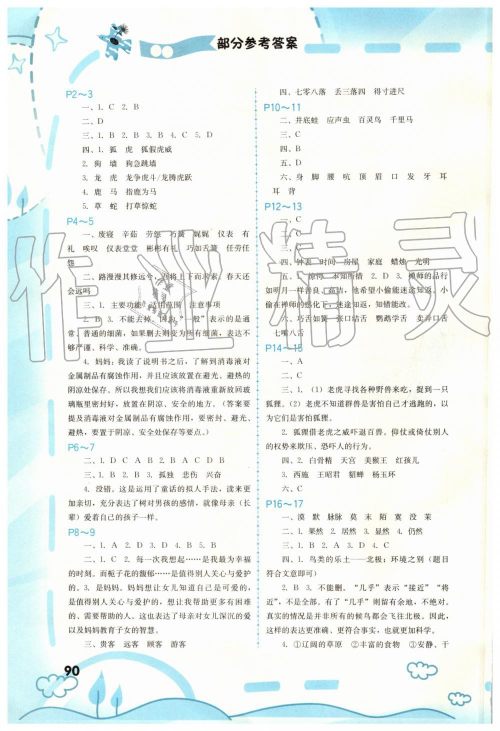 部分参考答案
P2～3
一、1. C 2. B
二、D
三、1. B 2. B 3. B 4. C 5. D
四、1. 狐 虎 狐假虎威
2. 狗 墙 狗急跳墙
3. 龙 虎 龙争虎斗/龙腾虎跃
4. 鹿 马 指鹿为马
5. 草 蛇 打草惊蛇
P4～5
一、废寝 辛茹 劳怨 巧簧 娓娓 仪表 有
礼 唉叹 仪表堂堂 彬彬有礼 巧如舌簧 任劳任
怨
二、路漫漫其修远兮，吾将上下而求索。春天还
会远吗
三、1. 主要功能 适用范围 注意事项
2. B 3. 不能去掉。因为“一般”表示的是通
常、普通的细菌，如果删去则变为所有细菌，表达不
够严谨、科学、准确。
4. 妈妈：我在读了说明书之后，了解到消毒液对
金属制品有腐蚀作用，并且应该放置在避光、避热的
阴凉处保存。所以我想我们应该将消毒液重新放回玻
璃瓶里密封好，放置在阴凉、安全的地方。（答案要
提及消毒液对金属制品有腐蚀作用，要密封、避光、
避热，要置于阴凉、安全处等要点。）
P6～7
一、D C A B 二、B A C D B
三、1. B 2. B 3. 孤独 悲伤 兴奋
4. 没错。这真的运用了童话的拟人手法，读来更
加亲切，充分表达了树对男孩的感情，就像母亲（长
辈）爱着自己的孩子一样。
P8～9
一、1. A 2. D 3. D 4. B 5. A
二、1. C 2. 每一次我想起……是我最为幸福
的时刻。而栀子花的馥郁……是值得别人关心与爱护
的。3. 是妈妈。妈妈想让女儿知道自己是可爱的，
是值得别人关心与爱护的，想让我帮助更多有困难
的、需要帮助的人。这也表达了母亲对女儿深沉的爱
以及妈妈教育子女的智慧。
三、贵客 远客 顾客 游客
90
四、七零八落 丢三落四 得寸进尺
P10～11
二、井底蛙 应声虫 百灵鸟 千里马
三、C
四、B
五、D
六、身 脚 腰 吭 顶 眉 口 发 牙 耳
耳 背
P12～13
二、C
三、C
四、钟表 时间 房屋 家庭 蜡烛 光明
五、1. 惊愕 不知所措 2. D 3. 禅师的品行
如明月一样善良、高洁，他希望小偷能迷途知返。小
偷在禅师的感化下，迷途知返、知错能改。
六、巧舌如簧 张口结舌 鹦鹉学舌 卖弄口舌
七嘴八舌
P14～15
二、A
三、1.（1）老虎寻找各种野兽来吃，捉到一只
狐狸。（2）老虎不知道群兽是害怕自己才逃跑的，以
为它们是害怕狐狸。
2. 狐狸借老虎之威吓退百兽。仰仗或倚仗别人
的权势来欺压、恐吓人的行为。
四、2. 白骨精 天宫 美猴王 红孩儿
3. 西施 王昭君 貂蝉 杨玉环
六、C
P16～17
一、漠 默 脉脉 莫 末 陌 寞 没 茉
二、1. 果然 2. 居然 3. 显然 4. 仍然
三、1. B 2. A 3. D 4. C
四、1. 鸟类的乐土——北极；环境之别（题目
符合文意即可）
2. B 3. 不能删。“几乎”表示“接近”“将
近”，不是全部。有了“几乎”则留有余地，不绝对。
真实的情况是并非所有的候鸟都会飞往北极。因此，
这样的表达更准确、更符合事实，也更加科学。
4. ①辽阔的草原 ②丰富的食物 ③安静、干
作业精灵